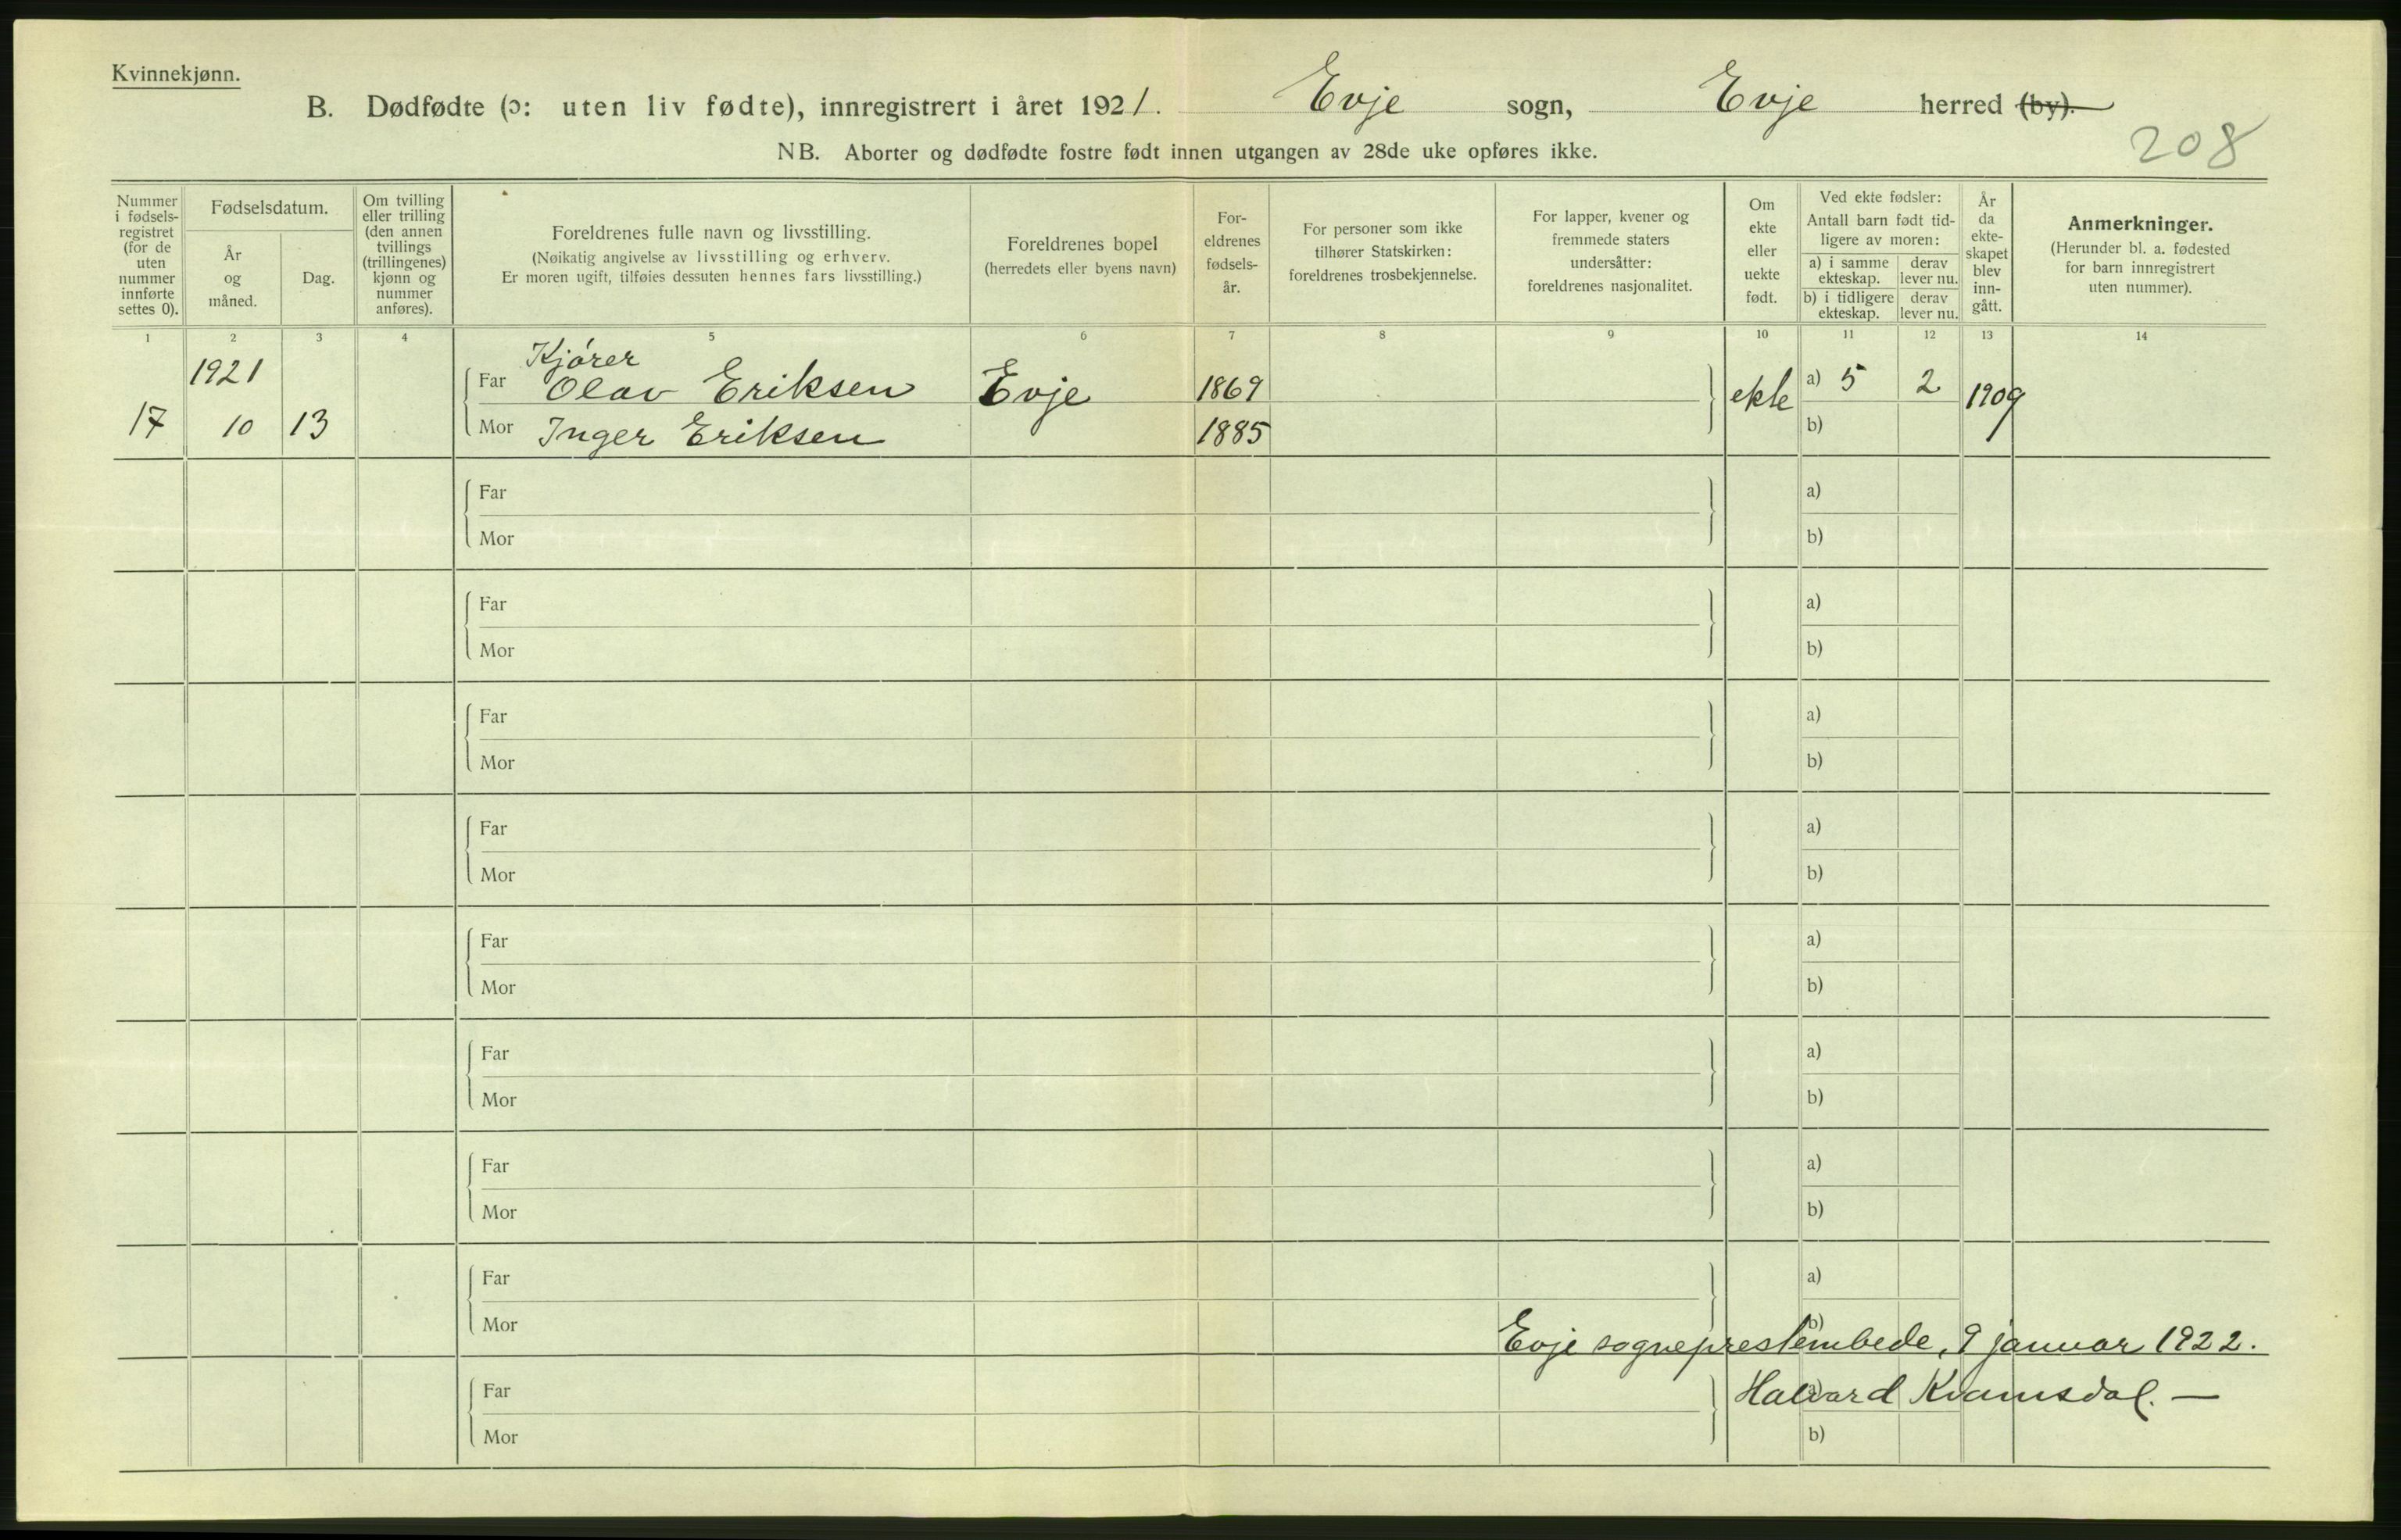 Kvinnekjønn.
B. Dødfødte (ɔ: uten liv fødte), innregistrert i året 1921. Evje sogn, Evje herred (by).
NB. Aborter og dødfødte fostre født innen utgangen av 28de uke opføres ikke.
208
Nummer i fødsels-registret (for de uten nummer innførte settes 0).
Fødselsdatum.
År og måned.
Dag.
Om tvilling eller trilling (den annen tvillings (trillingenes) kjønn og nummer anføres).
Foreldrenes fulle navn og livsstilling.
(Nøikatig angivelse av livsstilling og erhverv.
Er moren ugift, tilføies dessuten hennes fars livsstilling.)
Foreldrenes bopel
(herredets eller byens navn)
For-eldrenes fødsels-år.
For personer som ikke tilhører Statskirken: foreldrenes trosbekjennelse.
For lapper, kvener og fremmede staters undersåtter: foreldrenes nasjonalitet.
Om ekte eller uekte født.
Ved ekte fødsler:
Antall barn født tid-ligere av moren:
a) i samme ekteskap.
derav lever nu.
b) i tidligere ekteskap.
derav lever nu.
År da ekte-skapet blev inn-gått.
Anmerkninger.
(Herunder bl. a. fødested for barn innregistrert uten nummer).
1 2 3 4 5 6 7 8 9 10 11 12 13 14
1921 Kjører
Far Olav Eriksen Evje 1869 ekte a) 5 2 1909
17 10 13 Mor Inger Eriksen 1885 b)
Far a)
Mor b)
Far a)
Mor b)
Far a)
Mor b)
Far a)
Mor b)
Far a)
Mor b)
Far a)
Mor b)
Far a)
Mor b)
Far a)
Mor b)
Evje sogneprestembede, 9 januar 1922.
Far a) Halvard Kvamsdal. —
Mor b)